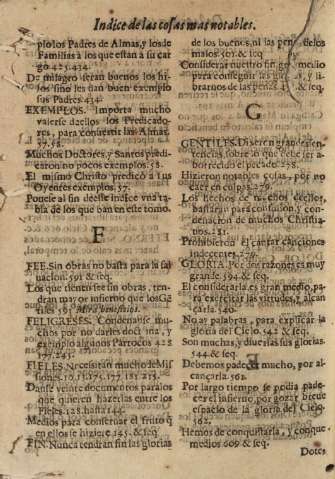 Indice de las cosas mas notables.
plo los Padres de Almas, y los de
Familias à los que estan à su car
go 425.434.
De milagro seràn buenos los hi-
jos sino les dan buen exemplo
sus Padres. 434.
EXEMPLOS. Importa mucho
valerse de ellos los Predicado-
res, para convertir las Almas.
57.58.
Muchos Doctores, y Santos predi-
caron no pocos exemplos. 58.
El mismo Christo predicò a sus
Oyentes exemplos. 57.
Ponese al fin de este indice vna ta
bla de los que van en este tomo.
F
FEE. Sin obras no basta para la sal
uacion. 591 & seq.
Los que tienen fee sin obras, ten-
dran mayor infierno que los Gen
tiles 591. Mira beneficios.
FELIGRESES. Condenanse mu-
chos por no darles doctrina, y
exemplo algunos Parrocos 425
177.245.
FIELES. Necesitan mucho de Mis-
siones. 10.175.177.181.213.
Danse veinte documentos para los
que quieren hazerlas entre los
Fieles. 128. hasta 144.
Medios para conseruar el fruto q
en ellos se hiziere 145. & seq.
FIN. Nunca tendran fin las glorias
de los buenos, ni las penas de los
malos. 503 & seq.
Considerar nuestro fin gran medio
para conseguir las glorias, y li-
brarnos de las penas & seq.
G
GENTILES. Dixeron grandes sen-
tencias, sobre lo que debe ser a-
borrecido el pecado. 278.
Hizieron notables cosas, por no
caer en culpas. 279.
Los hechos de muchos de ellos,
bastaràn para confusion y con-
denacion de muchos Christia-
nos. 281.
Prohibieron el cantar canciones
indecentes. 279.
GLORIA. Por cinco razones es muy
grande. 594 & seq.
El considerarla es gran medio, pa-
ra exercitar las virtudes, y alcan
çarla. 540.
No ay palabras, para explicar la
gloria del Cielo. 542 & seq.
Son muchas, y diuersas sus glorias.
544 & seq.
Debemos padecer mucho, por al-
cançarla. 561.
Por largo tiempo se podia pade-
cer el infierno, por gozar breue
espacio de la gloria del Cielo.
562.
Hemos de conquistarla, y con que
medios 609 & seq.
Dotes